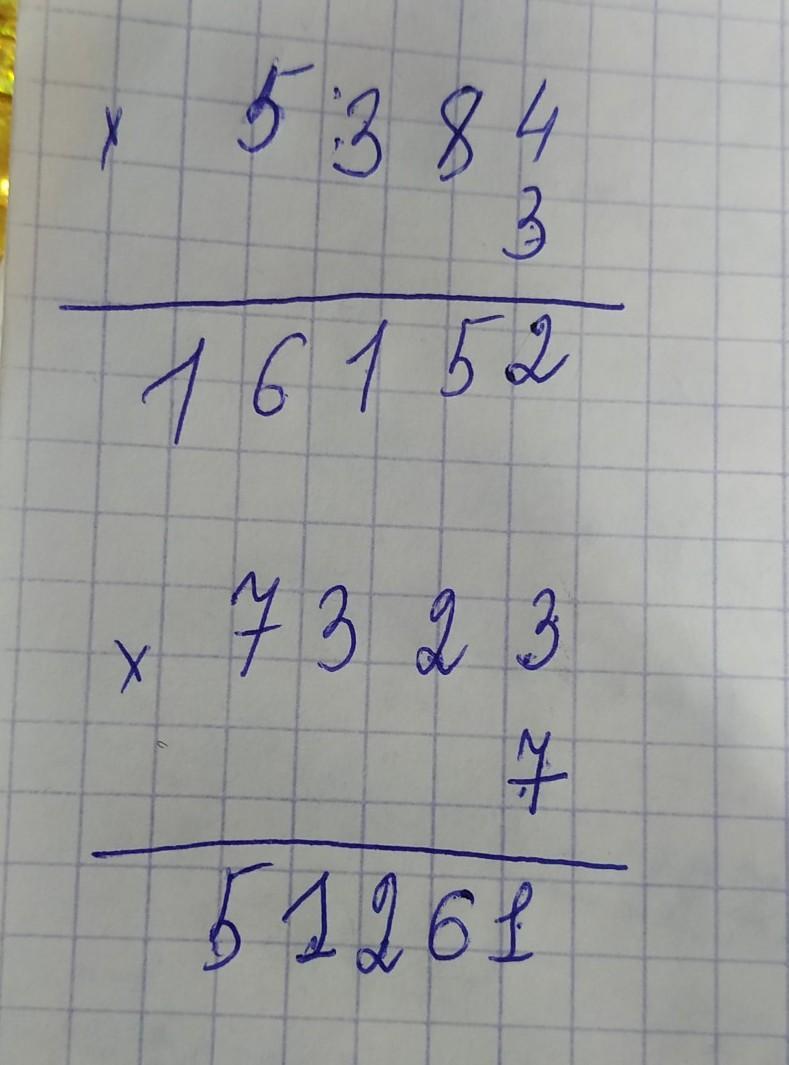 x 5384
3
16152
x 7323
7
51261